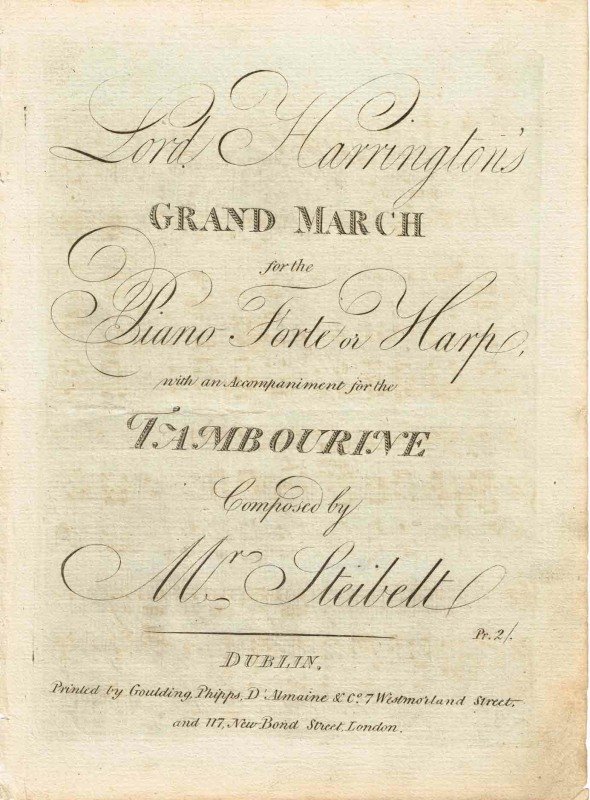 Lord Harrington's
GRAND MARCH
for the
Piano Forte or Harp,
with an Accompaniment for the
TAMBOURINE
Composed by
Mr. Steibelt
Pr. 2/.
DUBLIN,
Printed by Goulding, Phipps, D'Almaine & Co. 7 Westmorland Street.
and 117, New Bond Street, London.